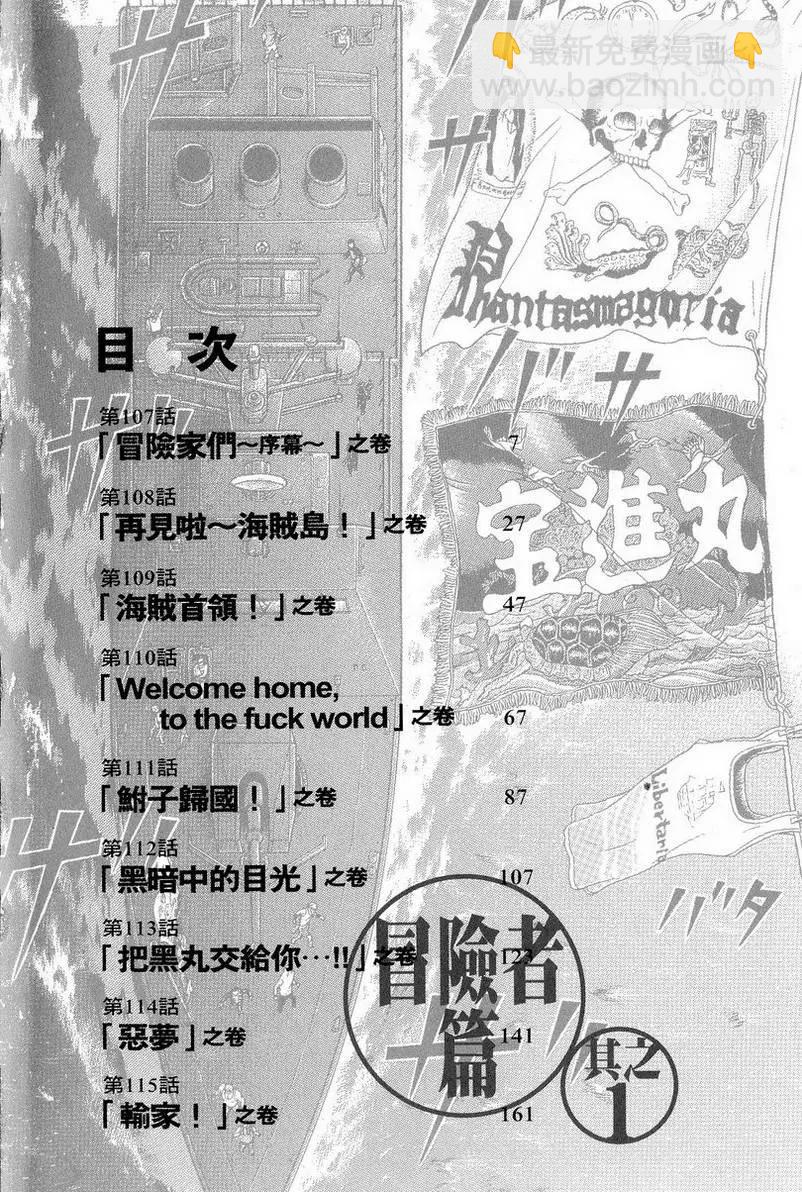 👇最新免费漫画👇
www.baozimh.com
Phantasmagoria
目 次
第107話
「冒險家們～序幕～」之卷 7
第108話
「再見啦～海賊島！」之卷 27
第109話
「海賊首領！」之卷 47
第110話
「Welcome home,
to the fuck world」之卷 67
第111話
「鮒子歸國！」之卷 87
第112話
「黑暗中的目光」之卷 107
第113話
「把黑丸交給你…!!」之卷 123
第114話
「惡夢」之卷 141
第115話
「輸家！」之卷 161
宝進丸
Libertaria
バタ
冒險者
篇
其之
1